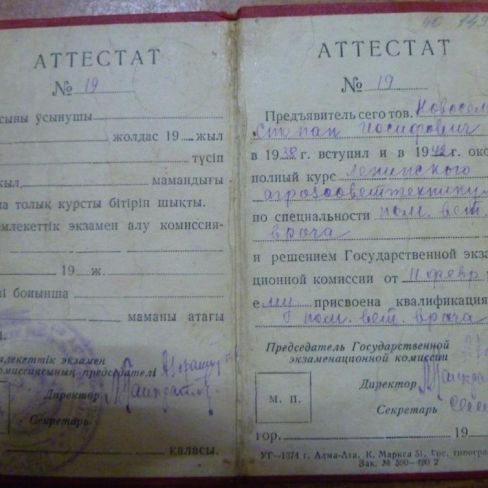 АТТЕСТАТ
№ 19
сыны ұсынушы
жолдас 19 жыл
түсіп
мамандығы
толық курсты бітіріп шықты.
млекеттік экзамен алу комиссия-
19 ж.
бойынша
маманы атағы
млекеттік экзамен
омиссиясының председателі
Директор
Секретарь
қаласы.
АТТЕСТАТ
№ 19
Предъявитель сего тов. Новосел
Степан Иосифович
в 1938 г. вступил и в 1942 г. око
полный курс Ленинского
агрозооветтехнику
по специальности пом. вет.
врача
и решением Государственной экза
ционной комиссии от 11 февр
ему присвоена квалификация
пом. вет. врача
Председатель Государственной
экзаменационной комиссии
Директор
м. п.
Секретарь
гор. 19
УГ—1374 г. Алма-Ата, К. Маркса 51, Гос. типогра
Зак. № 500—400 2